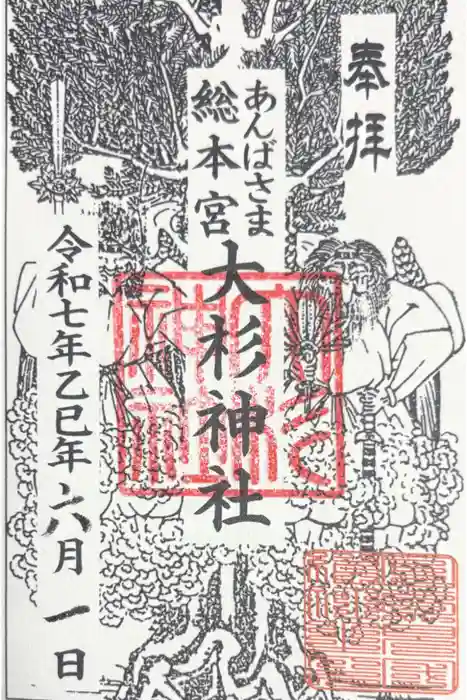 奉拝
あんばさま
総本宮
大杉神社
令和七年乙巳年六月一日